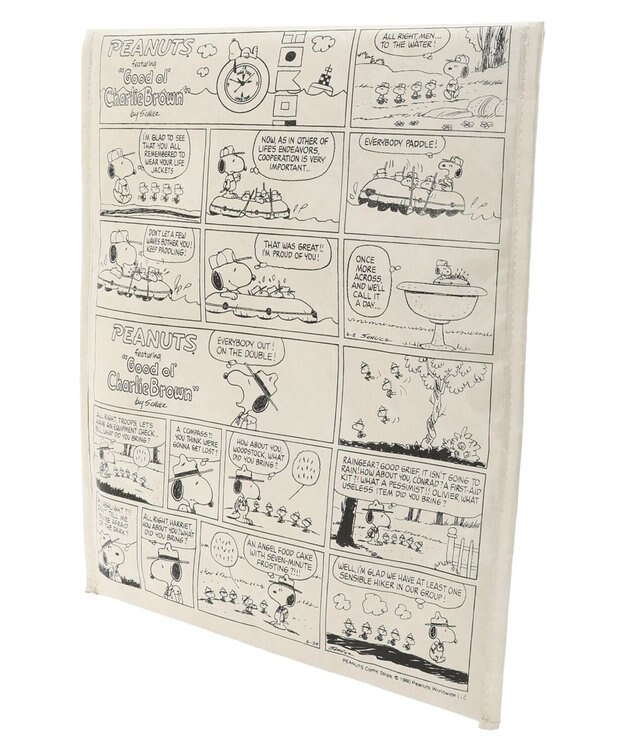 PEANUTS
featuring
"Good ol'
Charlie Brown"
by SCHULZ
ALL RIGHT, MEN...
TO THE WATER!
I'M GLAD TO SEE
THAT YOU ALL
REMEMBERED TO
WEAR YOUR LIFE
JACKETS
NOW, AS IN OTHER OF
LIFE'S ENDEAVORS,
COOPERATION IS VERY
IMPORTANT...
EVERYBODY PADDLE!
DON'T LET A FEW
WAVES BOTHER YOU!
KEEP PADDLING!
THAT WAS GREAT!!
I'M PROUD OF YOU!
ONCE
MORE
ACROSS,
AND WE'LL
CALL IT
A DAY...
6-8 SCHULZ
PEANUTS
featuring
"Good ol'
Charlie Brown"
by SCHULZ
EVERYBODY OUT!
ON THE DOUBLE!
ALL RIGHT, TROOPS, LET'S
HAVE AN EQUIPMENT CHECK...
WHAT DID YOU BRING?
A COMPASS?!
YOU THINK WE'RE
GONNA GET LOST?
HOW ABOUT YOU
WOODSTOCK, WHAT
DID YOU BRING?
RAINGEAR? GOOD GRIEF, IT ISN'T GOING TO
RAIN! HOW ABOUT YOU, CONRAD? A FIRST-AID
KIT?! WHAT A PESSIMIST!! OLIVIER, WHAT
USELESS ITEM DID YOU BRING?
ME
AFRAID
DARK?
ALL RIGHT, HARRIET,
HOW ABOUT YOU? WHAT
DID YOU BRING?
AN ANGEL FOOD CAKE
WITH SEVEN-MINUTE
FROSTING?!!!
WELL, I'M GLAD WE HAVE AT LEAST ONE
SENSIBLE HIKER IN OUR GROUP!
SCHULZ
PEANUTS Comic Strips © 1980 Peanuts Worldwide LLC